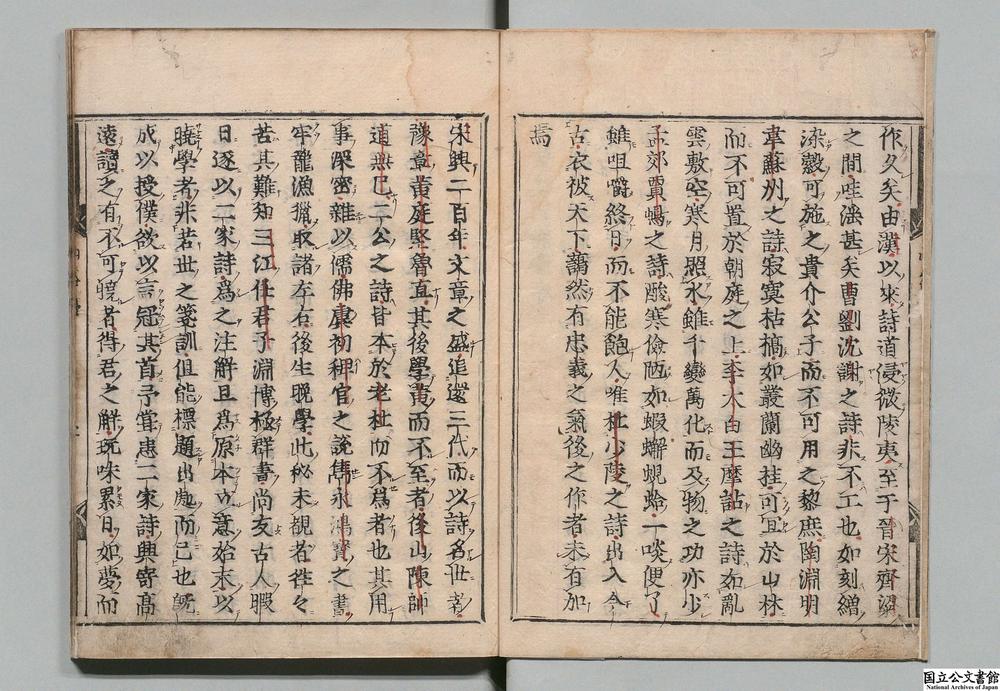 作久矣由漢以來詩道浸微陵夷至于晉宋齊梁
之間哇淫甚矣曹劉沈謝之詩非不工也如刻繒
染縠可施之貴介公子而不可用之黎庶陶淵明
韋蘇州之詩寂寞枯槁如叢蘭幽桂可宜於山林
而不可置於朝廷之上李太白王摩詰之詩如亂
雲敷空寒月照水雖千變萬化而及物之功亦少
孟郊賈島之詩酸寒儉陋如蝦蠏蜆蛤一啖便了
雖咀嚼終日而不能飽人唯杜少陵之詩出入今
古衣被天下藹然有忠義之氣後之作者未有加
焉
宋興二百年文章之盛追還三代而以詩名世者
豫章黃庭堅魯直其後學黃而不至者後山陳師
道無已二公之詩皆本於老杜而不爲者也其用
事深密雜以儒佛虞初稗官之說雋永鴻寶之書
牢籠漁獵取諸左右後生晚學此秘未覩者往々
苦其難知三江任君子淵博極群書尚友古人暇
日逐以二家詩爲之注解且爲原本立意始末以
曉學者非若世之箋訓但能標題出處而已也旣
成以授僕欲以言冠其首予嘗患二家詩興寄高
遠讀之有不可曉者得君之解玩味累日如夢而
国立公文書館
National Archives of Japan